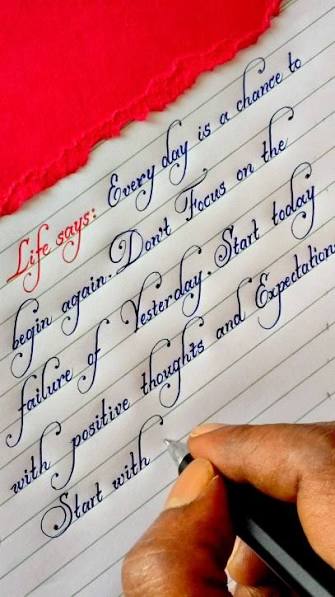 Life says: Every day is a chance to
begin again. Don't Focus on the
failure of Yesterday. Start today
with positive thoughts and Expectation
Start with